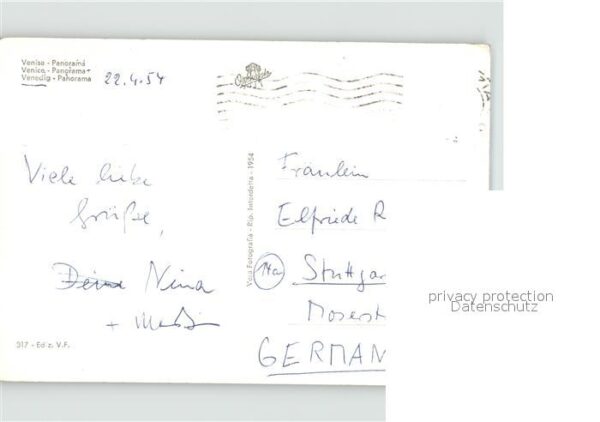 Venise - Panorama
Venice - Panorama
Venedig - Panorama
22.4.54
Viele liebe
Grüße,
Deine Nina
+
317 - Ediz. V.F.
Vera Fotografia - Rip. Interdetta - 1954
Fräulein
Elfriede R
(14a) Stuttgar
Moserst
GERMAN
privacy protection
Datenschutz